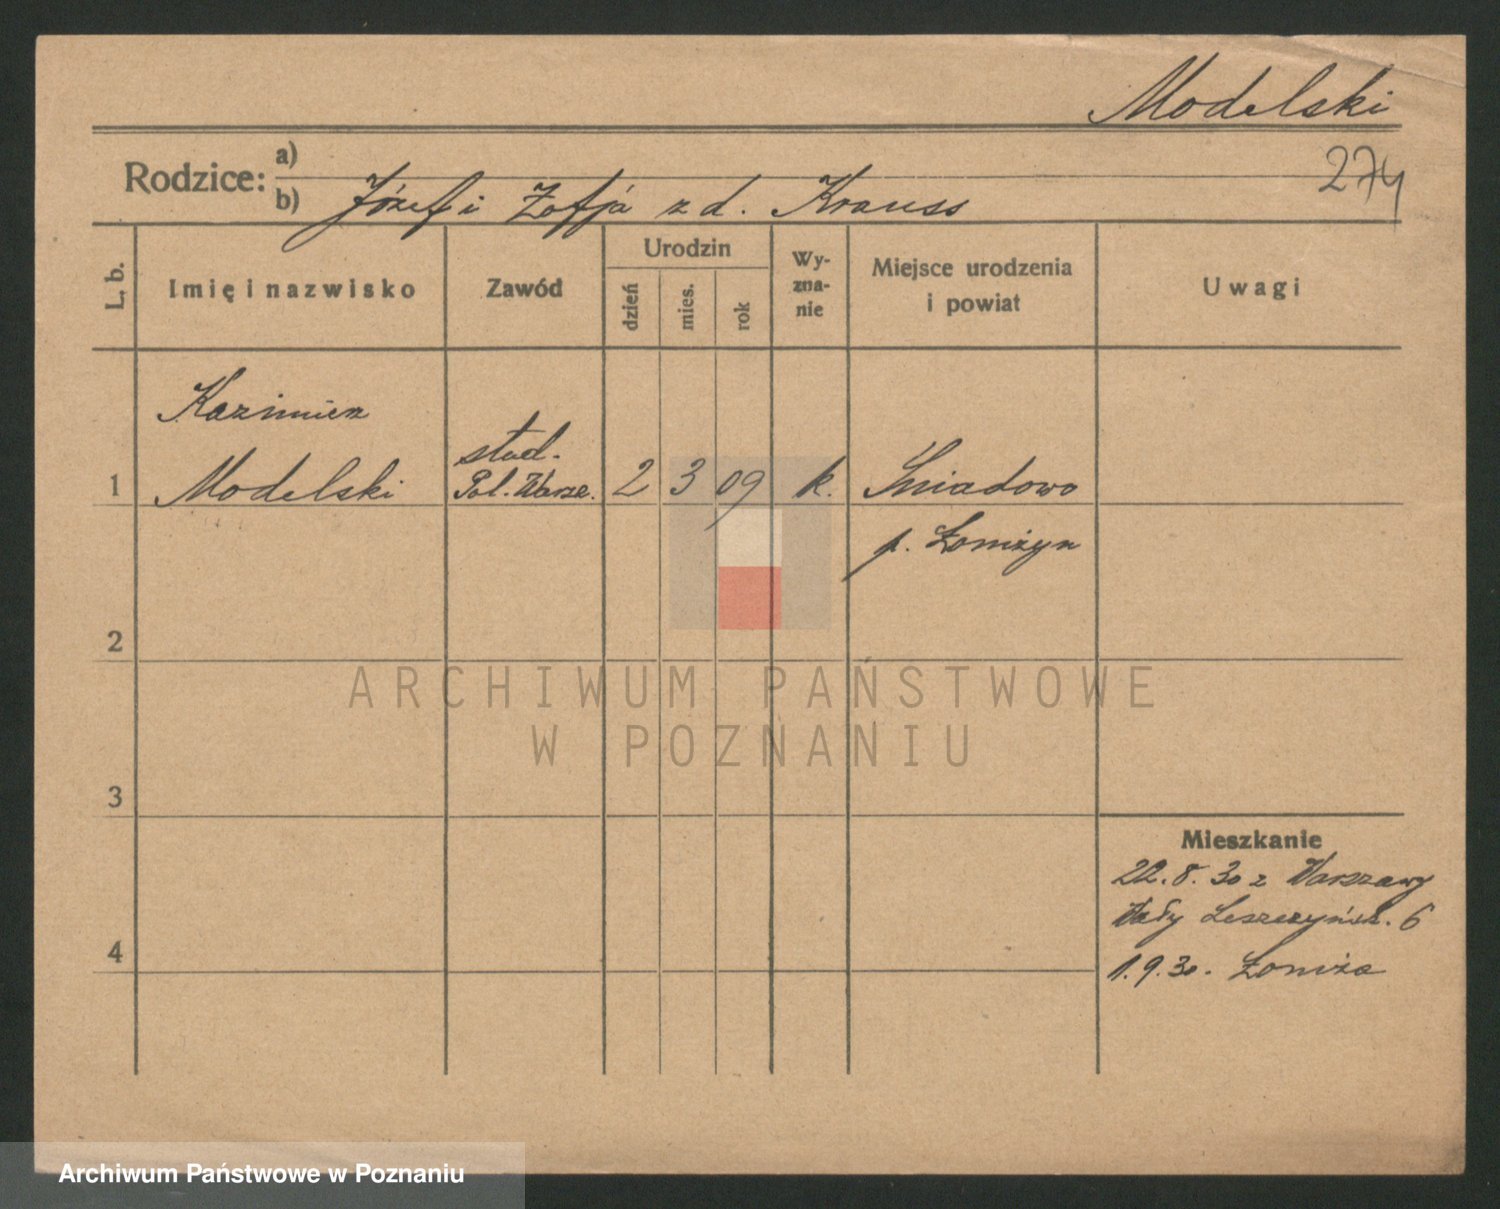 Modelski
274
Rodzice:
a)
b) Józef i Zofja z d. Krauss
L. b.
Imię i nazwisko
Zawód
Urodzin
dzień
mies.
rok
Wy-
zna-
nie
Miejsce urodzenia
i powiat
Uwagi
Kazimierz
stud.
1 Modelski Pol. Warsz. 2 3 09 k. Śniadowo
p. Łomżyn
2
ARCHIWUM PAŃSTWOWE
W POZNANIU
3
Mieszkanie
22.8.30 z Warszawy
Wały Leszczyńsk. 6
4
1.9.30. Łomża
Archiwum Państwowe w Poznaniu